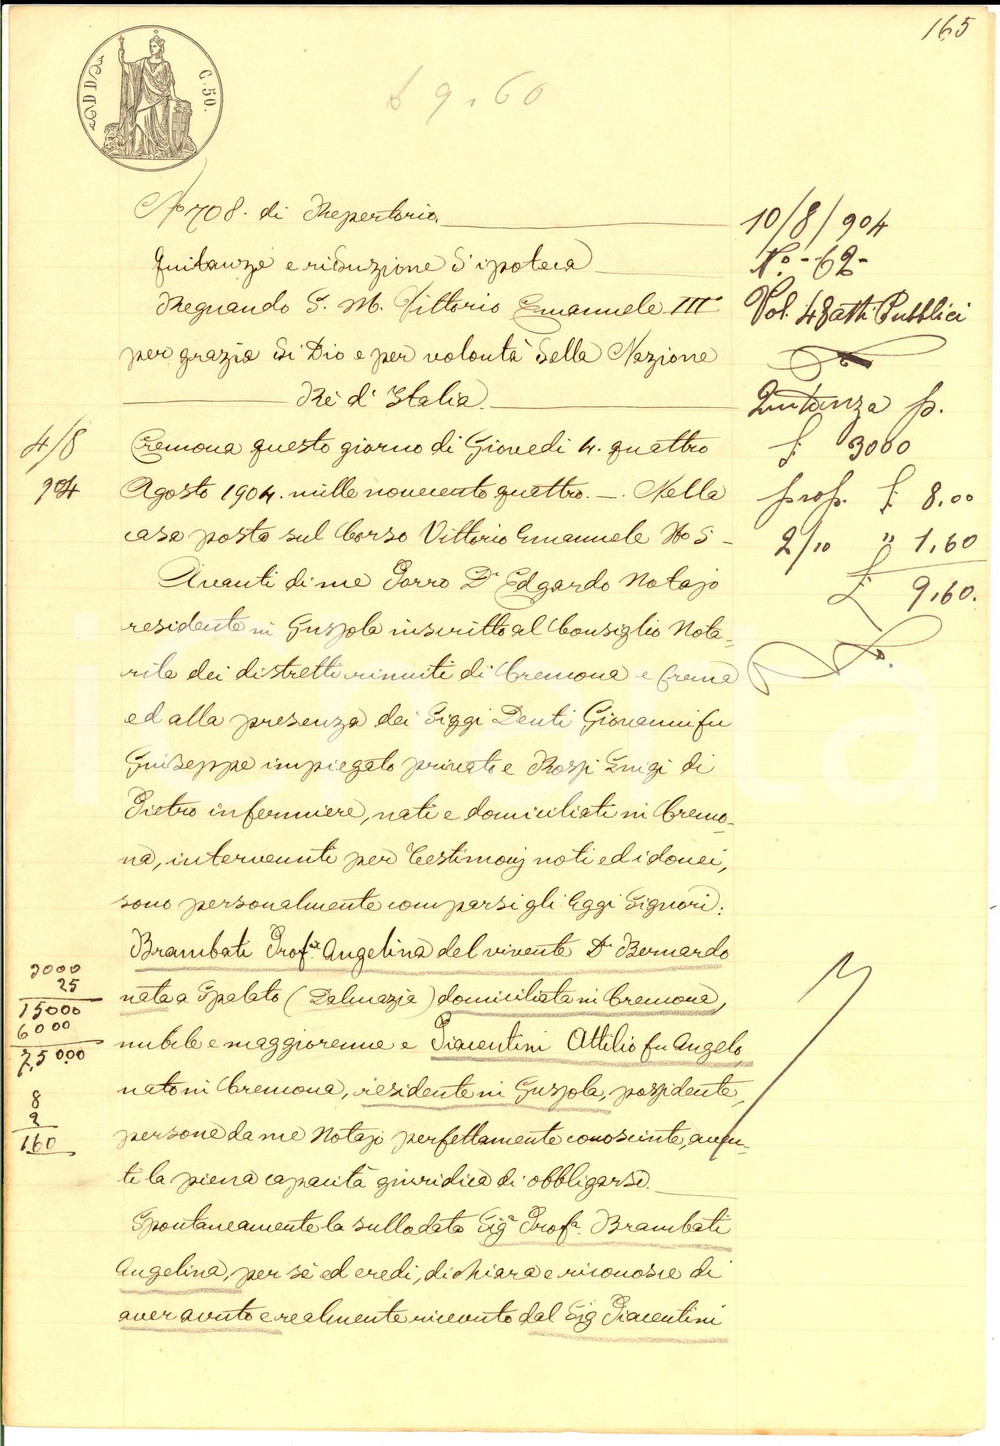 165
C. 50.
9.60
No 708. di Repertorio
Quitanza e riduzione d'ipoteca
Regnando S. M. Vittorio Emanuele III°
per grazia di Dio e per volontà della Nazione
Rè d'Italia.
Cremona questo giorno di Giovedi 4. quattro
Agosto 1904. mille novecento quattro. — Nella
casa posta sul Corso Vittorio Emanuele No 5 -
Avanti di me Porro Dr Edgardo Notajo
residente in Gussola inscritto al Consiglio Nota-
rile dei distretti riuniti di Cremona e Crema
ed alla presenza dei Siggi Denti Giovanni fu
Giuseppe impiegato privato e Rossi Luigi di
Pietro infermiere, nati e domiciliati in Cremo-
na, intervenuti per Testimonj noti ed idonei,
sono personalmente comparsi gli Eggi Signori:
Brambati Profa Angelina del vivente Dr Bernardo
nata a Spalato (Dalmazia) domiciliata in Cremona,
nubile e maggiorenne e Piacentini Attilio fu Angelo,
nato in Cremona, residente in Gussola, possidente,
persone da me Notajo perfettamente conosciute, aven-
ti la piena capacità giuridica di obbligarsi.
Spontaneamente la sullodata Siga Profa Brambati
Angelina, per sé ed eredi, dichiara e riconosce di
aver avuto e realmente ricevuto dal Sig Piacentini
10/8/904
No. - 62 -
Vol. 48 atti Pubblici
Quitanza p.
£ 3000
prop. £ 8.00
2/10 " 1,60
£ 9,60.
4/8
904
3000
25
15000
6000
7,5000
8
2
160